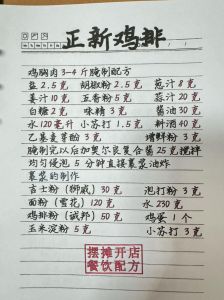 正新鸡排
鸡胸肉3-4斤腌制配方
盐2.5克 胡椒粉2.5克 葱汁8克
姜汁10克 五香粉5克 蒜汁20克
白糖2克 味精3克 酱油30克
水120毫升 小苏打1.5克 料酒40克
乙基麦芽酚3克 增鲜粉3克
腌制完以后加奥尔良复合酱25克搅拌
均匀侵泡5分钟直接裹浆油炸
裹浆的制作
吉士粉(狮威)30克 泡打粉3克
面粉(雪花)120克 水230克
鸡排粉(诚邦)50克 鸡蛋1个
玉米淀粉5克 小苏打3克
摆摊开店
餐饮配方